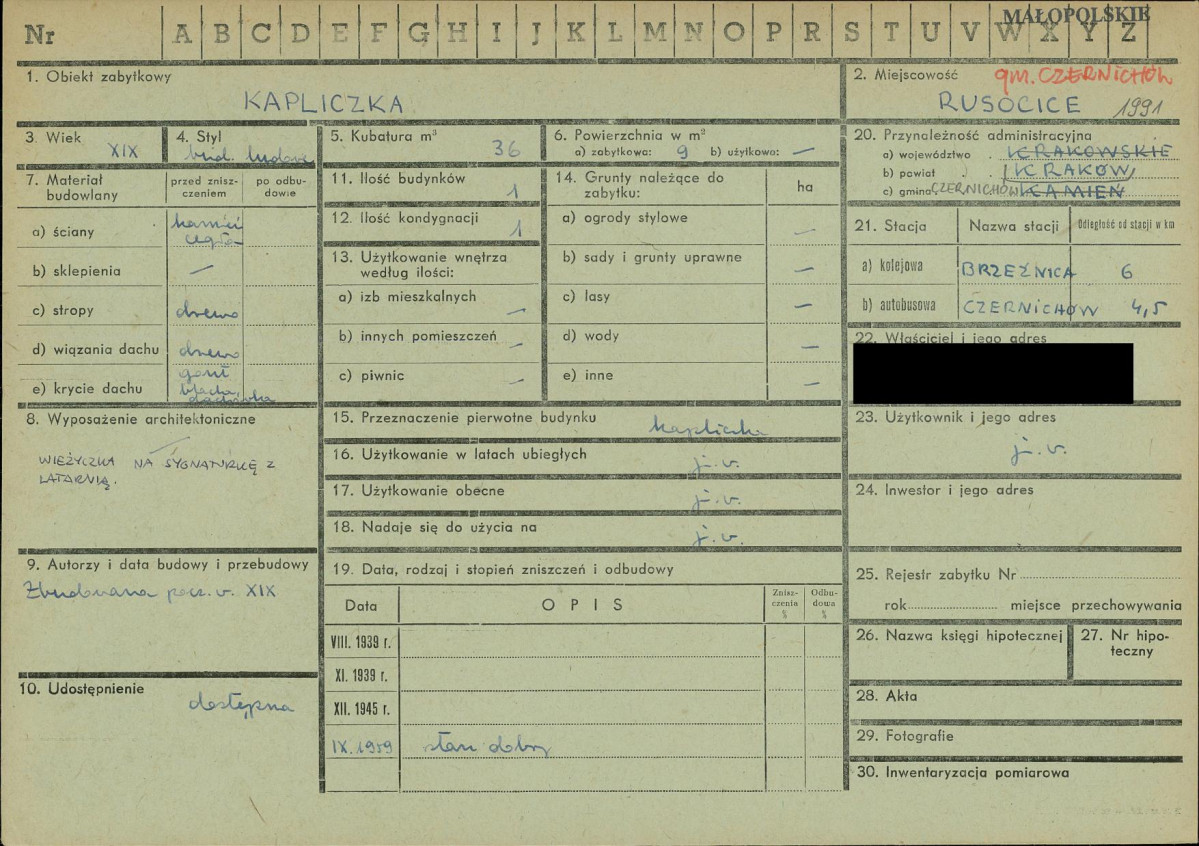 MAŁOPOLSKIE
Nr A B C D E F G H I J K L M N O P R S T U V W X Y Z
1. Obiekt zabytkowy
KAPLICZKA
2. Miejscowość gm. CZERNICHÓW
RUSOCICE 1991
3. Wiek
XIX
4. Styl
bud. ludowe
5. Kubatura m³
36
6. Powierzchnia w m²
a) zabytkowa: 9 b) użytkowa: —
7. Materiał budowlany
przed zniszczeniem
po odbudowie
a) ściany kamień cegła
b) sklepienia —
c) stropy drewno
d) wiązania dachu drewno
e) krycie dachu gont blacha dachówka
8. Wyposażenie architektoniczne
WIEŻYCZKA NA SYGNATURKĘ Z
LATARNIĄ.
9. Autorzy i data budowy i przebudowy
Zbudowana pocz. w. XIX
10. Udostępnienie
dostępna
11. Ilość budynków 1
12. Ilość kondygnacji 1
13. Użytkowanie wnętrza
według ilości:
a) izb mieszkalnych —
b) innych pomieszczeń —
c) piwnic —
14. Grunty należące do
zabytku:
ha
a) ogrody stylowe —
b) sady i grunty uprawne —
c) lasy —
d) wody —
e) inne —
15. Przeznaczenie pierwotne budynku kapliczka
16. Użytkowanie w latach ubiegłych j. w.
17. Użytkowanie obecne j. w.
18. Nadaje się do użycia na j. w.
19. Data, rodzaj i stopień zniszczeń i odbudowy
Data
OPIS
Zniszczenia %
Odbudowa %
VIII. 1939 r.
XI. 1939 r.
XII. 1945 r.
IX. 1959 stan dobry
20. Przynależność administracyjna
a) województwo KRAKOWSKIE
b) powiat KRAKÓW
c) gmina CZERNICHÓW KAMIEŃ
21. Stacja
Nazwa stacji
Odległość od stacji w km
a) kolejowa BRZEŹNICA 6
b) autobusowa CZERNICHÓW 4,5
22. Właściciel i jego adres
23. Użytkownik i jego adres
j. w.
24. Inwestor i jego adres
25. Rejestr zabytku Nr
rok miejsce przechowywania
26. Nazwa księgi hipotecznej
27. Nr hipoteczny
28. Akta
29. Fotografie
30. Inwentaryzacja pomiarowa